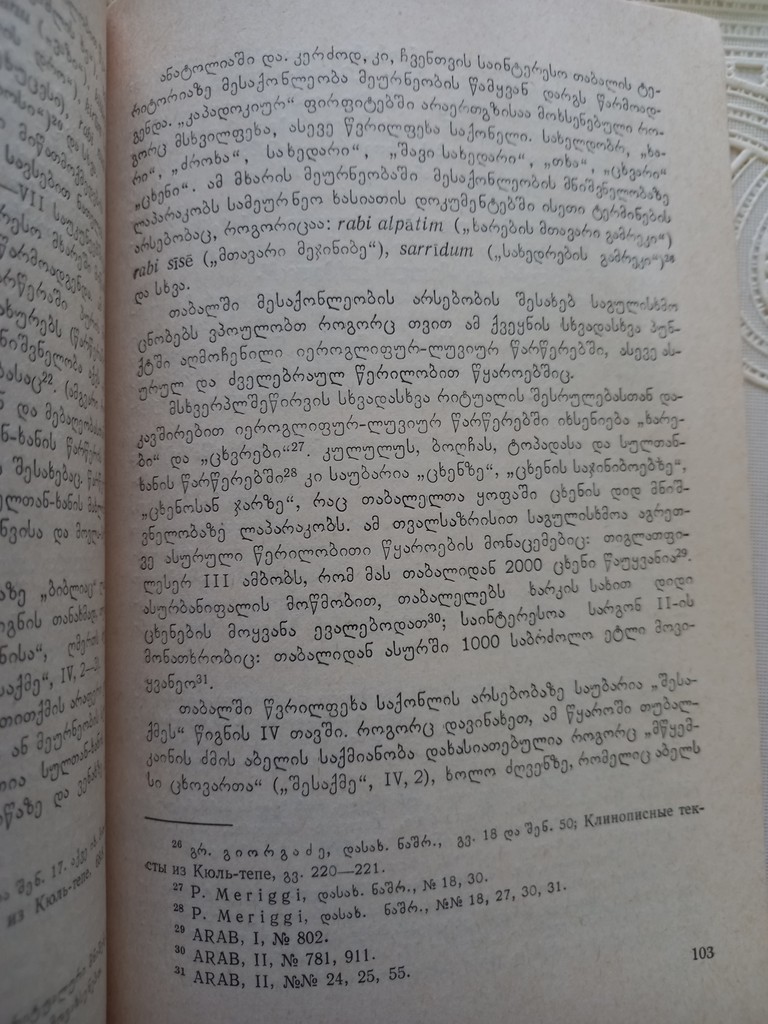 ანატოლიაში და. კერძოდ, კი, ჩვენთვის საინტერესო თაბალის ტე-
რიტორიაზე მესაქონლეობა მეურნეობის წამყვან დარგს წარმოად-
გენდა. „კაპადოკიურ“ ფირფიტებში არაერთგზისაა მოხსენებული რო-
გორც მსხვილფეხა, ასევე წვრილფეხა საქონელი. სახელდობრ, „ხა-
რი“, „ძროხა“, სახედარი“, „შავი სახედარი“, „თხა“, „ცხვარი“
„ცხენი“. ამ მხარის მეურნეობაში მესაქონლეობის მნიშვნელობაზე
ლაპარაკობს სამეურნეო ხასიათის დოკუმენტებში ისეთი ტერმინების
არსებობაც, როგორიცაა: rabi alpātim („ხარების მთავარი გამრეკი“)
rabi sīsē („მთავარი მეჯინიბე“), sarrīdum („სახედრების გამრეკი“)²⁶
და სხვა.
თაბალში მესაქონლეობის არსებობის შესახებ საგულისხმო
ცნობებს ვპოულობთ როგორც თვით ამ ქვეყნის სხვადასხვა პუნ-
ქტში აღმოჩენილი იეროგლიფურ-ლუვიურ წარწერებში, ასევე ას-
ურულ და ძველებრაულ წერილობით წყაროებშიც.
მსხვერპლშეწირვის სხვადასხვა რიტუალის შესრულებასთან და-
კავშირებით იეროგლიფურ-ლუვიურ წარწერებში იხსენიება „ხარე-
ბი“ და „ცხვრები“²⁷. კულულუს, ბოღჩას, ტოპადასა და სულთან-
ხანის წარწერებში²⁸ კი საუბარია „ცხენზე“, „ცხენის საჯინიბოებზე“,
„ცხენოსან ჯარზე“, რაც თაბალელთა ყოფაში ცხენის დიდ მნიშ-
ვნელობაზე ლაპარაკობს. ამ თვალსაზრისით საგულისხმოა აგრეთ-
ვე ასურული წერილობითი წყაროების მონაცემებიც: თიგლათფი-
ლესერ III ამბობს, რომ მას თაბალიდან 2000 ცხენი წაუყვანია²⁹.
ასურბანიფალის მოწმობით, თაბალელებს ხარკის სახით დიდი
ცხენების მოყვანა ევალებოდათ³⁰; საინტერესოა სარგონ II-ის
მონათხრობიც: თაბალიდან ასურში 1000 საბრძოლო ეტლი მოვი-
ყვანეო³¹.
თაბალში წვრილფეხა საქონლის არსებობაზე საუბარია „შესა-
ქმეს“ წიგნის IV თავში. როგორც დავინახეთ, ამ წყაროში თუბალ-
კაინის ძმის აბელის საქმიანობა დახასიათებულია როგორც „მწყემ-
სი ცხოვართა“ („შესაქმე“, IV, 2), ხოლო ძღვენზე, რომელიც აბელს
²⁶ გრ. გიორგაძე, დასახ. ნაშრ., გვ. 18 და შენ. 50; Клинописные тек-
сты из Кюль-тепе, გვ. 220—221.
²⁷ P. Meriggi, დასახ. ნაშრ., № 18, 30.
²⁸ P. Meriggi, დასახ. ნაშრ., №№ 18, 27, 30, 31.
²⁹ ARAB, I, № 802.
³⁰ ARAB, II, № 781, 911.
³¹ ARAB, II, №№ 24, 25, 55.
103